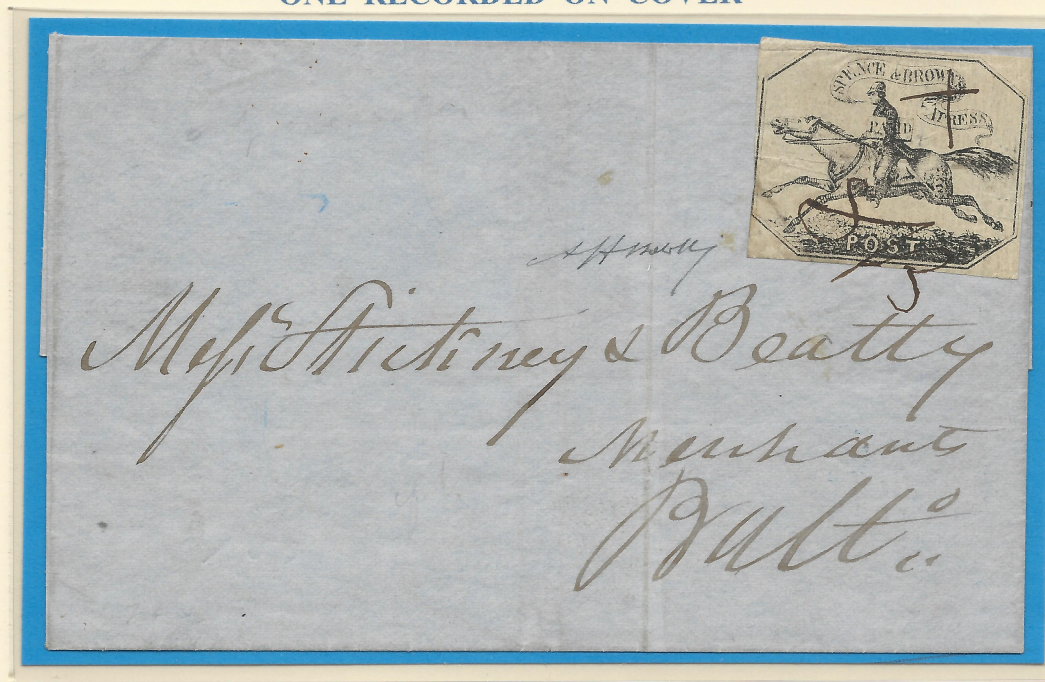 ONE RECORDED ON COVER
SPENCE & BROWN
EXPRESS
PAID
POST
Messrs Stickney & Beatty
Merchants
Balto